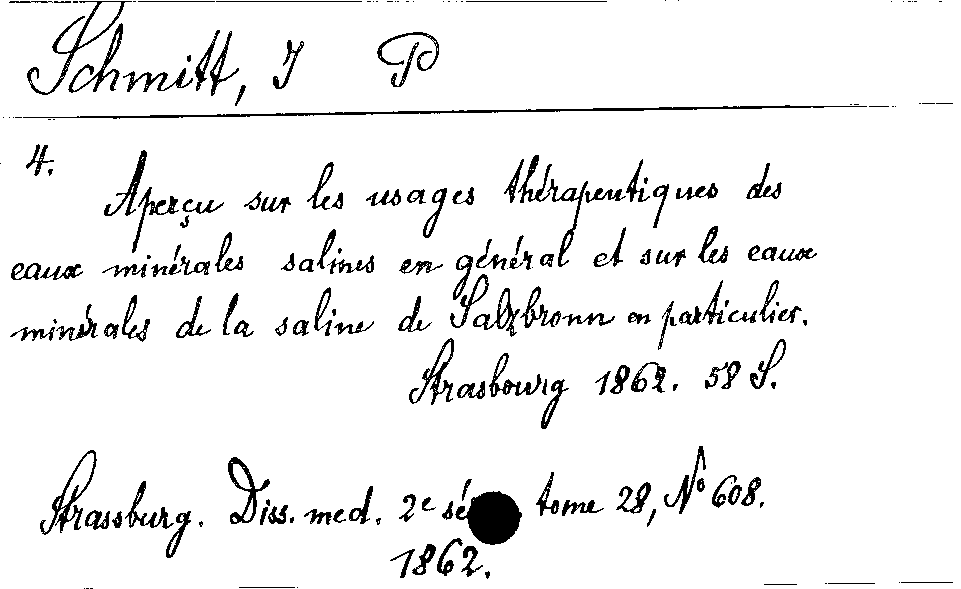 Schmitt, J P
4.
Aperçu sur les usages thérapeutiques des
eaux minérales salines en général et sur les eaux
minérales de la saline de Salzbronn en particulier.
Strasbourg 1862. 58 S.
Strassburg. Diss. med. 2e sé tome 28, No 608.
1862.